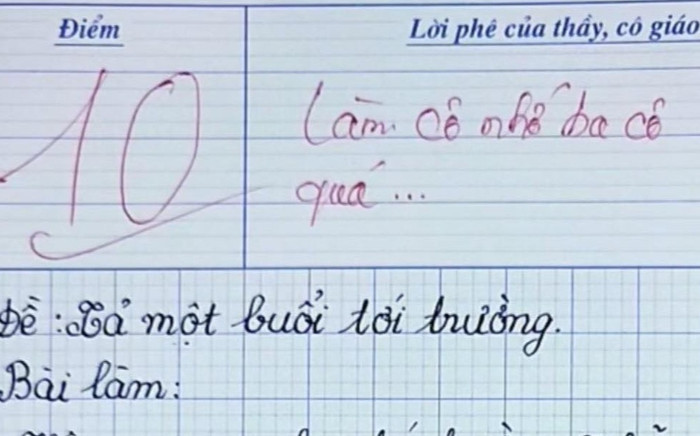 Điểm
Lời phê của thầy, cô giáo
10
Làm cô nhớ ba cô
quá ...
Đề : Tả một buổi tới trường.
Bài làm: